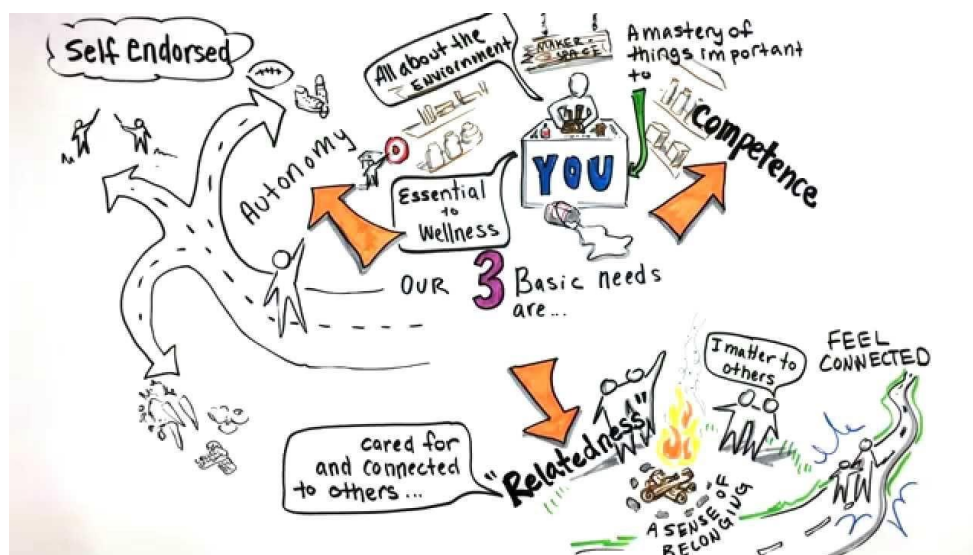 Self Endorsed
Autonomy
All about the
Enviornment
MAKER-
SPACE
A mastery of
things important
to
Competence
YOU
Essential
to
Wellness
OUR 3 Basic needs
are...
"Relatedness"
cared for
and connected
to others...
I matter to
others
FEEL
CONNECTED
A SENSE OF
BELONGING